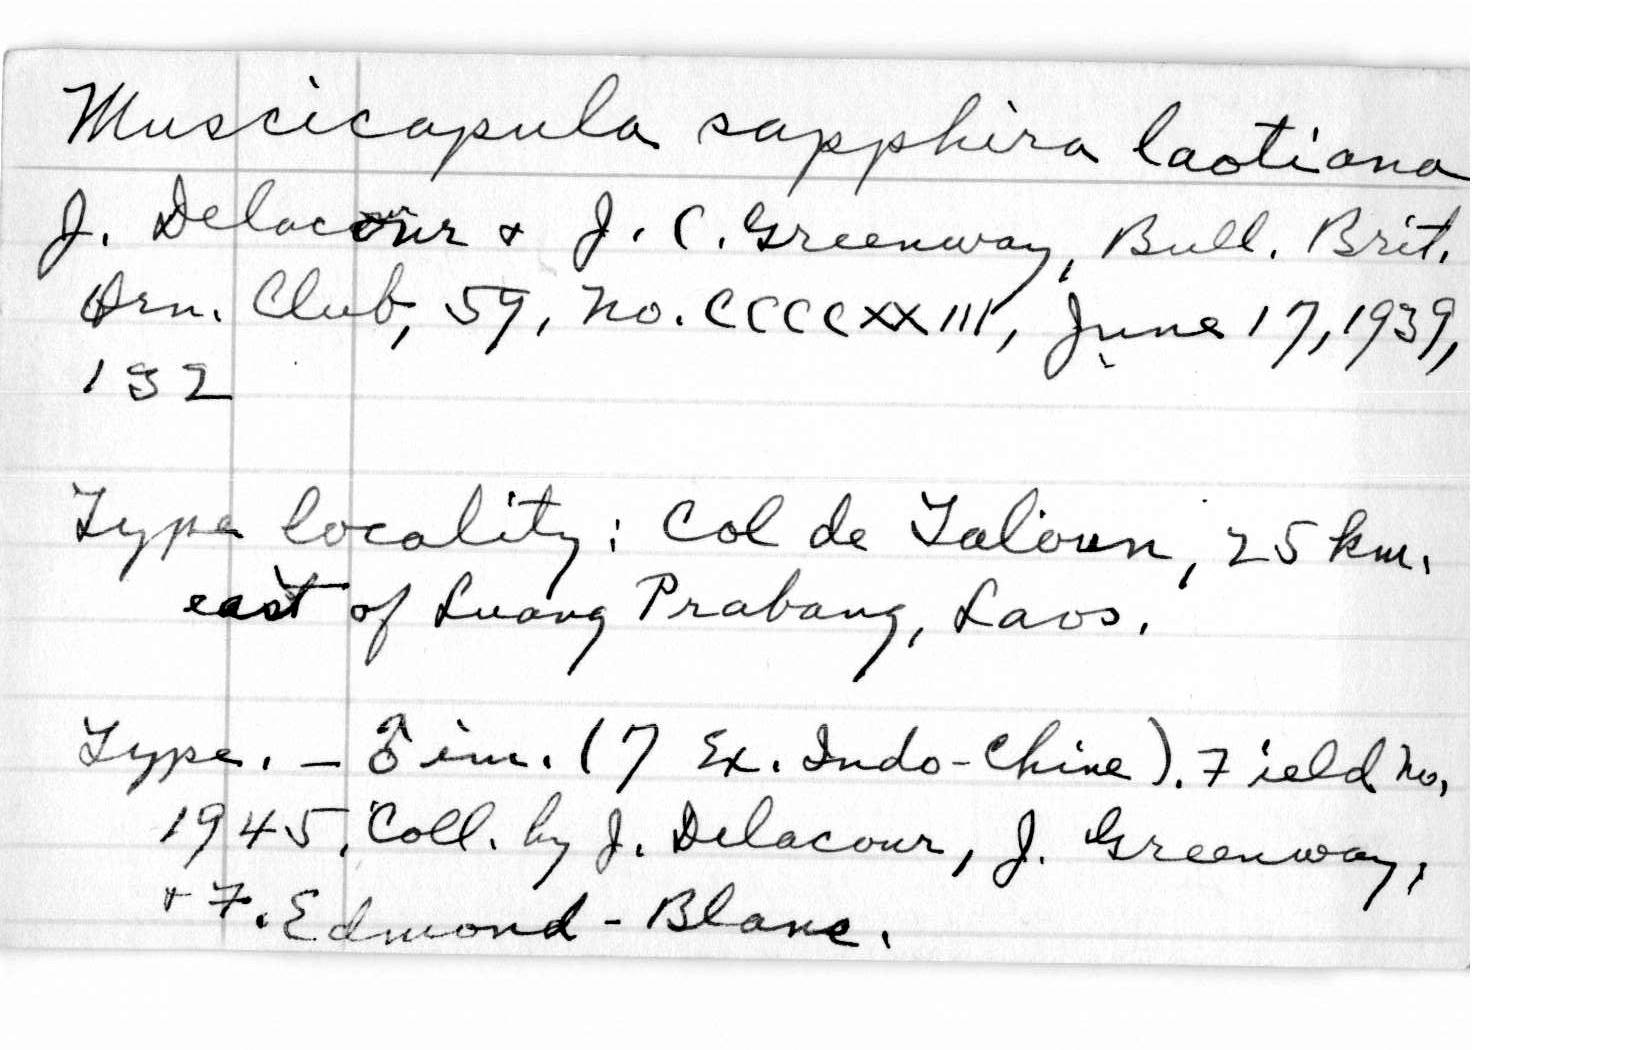 Muscicapula sapphira laotiana
J. Delacour & J. C. Greenway, Bull. Brit.
Orn. Club, 59, no. CCCCXXIII, June 17, 1939,
132
Type locality: Col de Taloun, 25 km.
east of Luang Prabang, Laos.
Type. — ♂ im. (7 Ex. Indo-Chine). Field no.
1945. Coll. by J. Delacour, J. Greenway,
+ F. Edmond-Blanc.